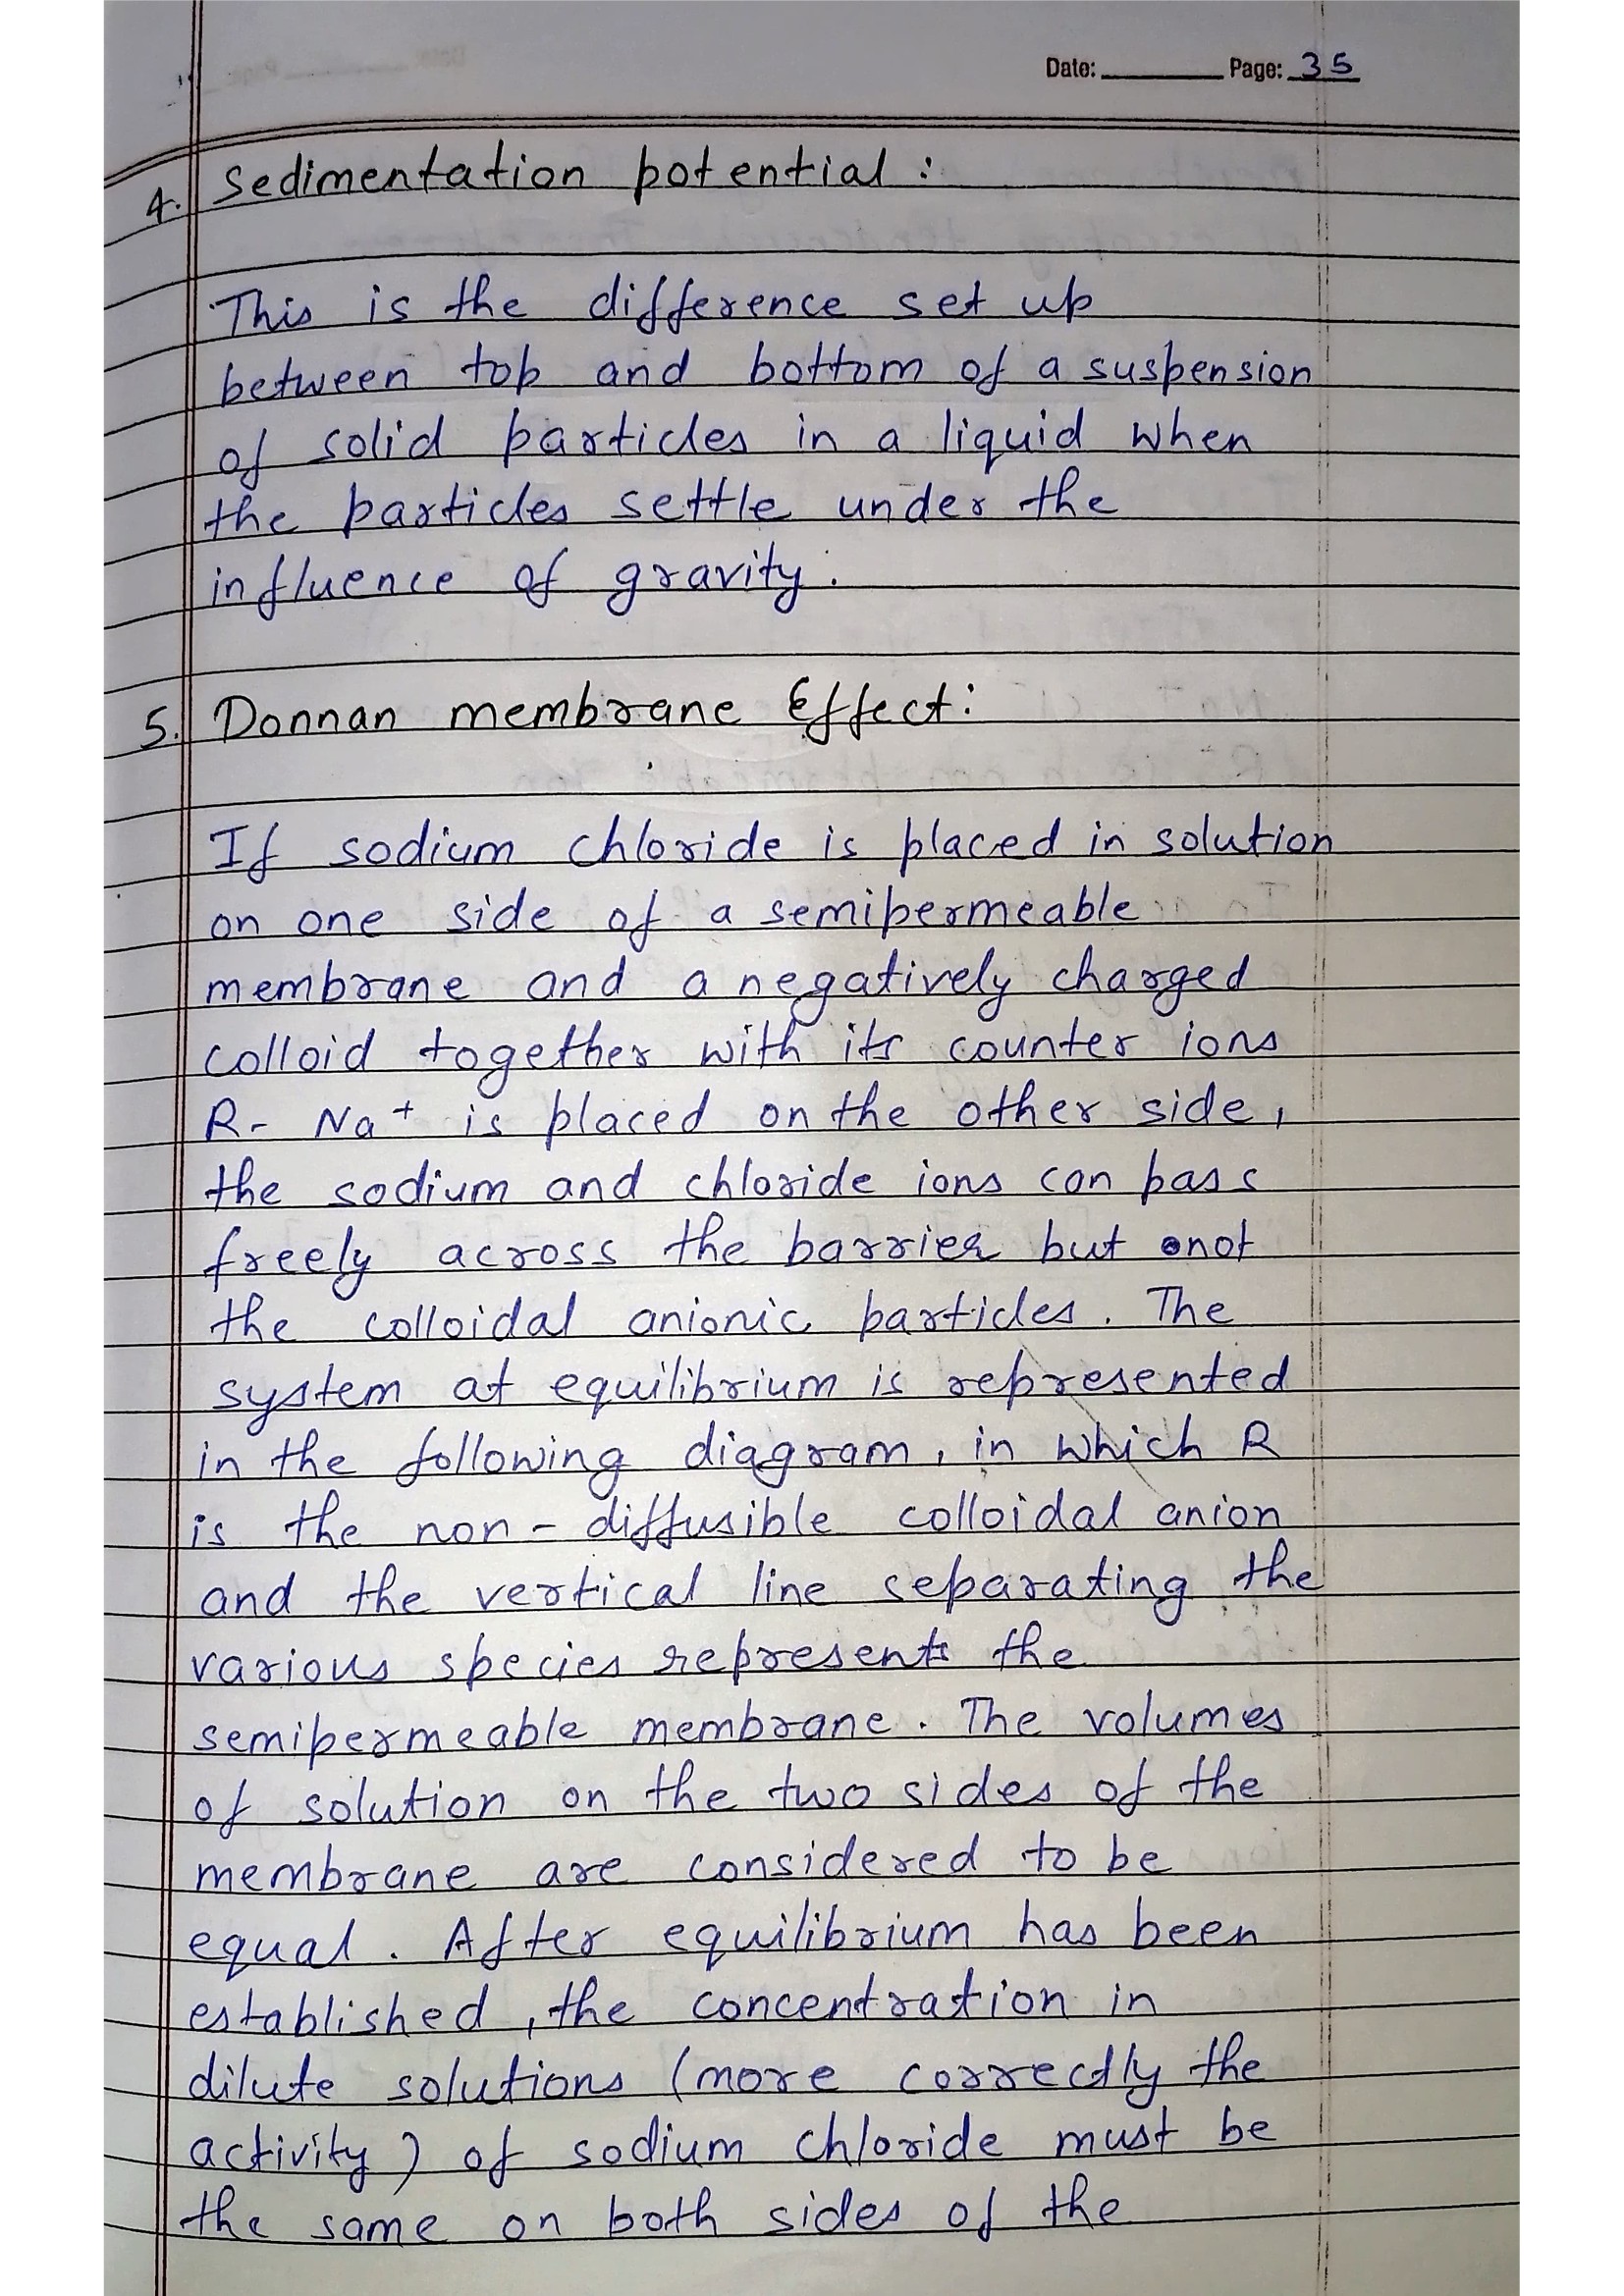 Date: Page: 35
4. Sedimentation potential :
This is the difference set up
between top and bottom of a suspension
of solid particles in a liquid when
the particles settle under the
influence of gravity.
5. Donnan membrane Effect:
If sodium chloride is placed in solution
on one side of a semipermeable
membrane and a negatively charged
colloid together with its counter ions
R- Na+ is placed on the other side,
the sodium and chloride ions can pass
freely across the barrier but not
the colloidal anionic particles. The
system at equilibrium is represented
in the following diagram, in which R
is the non-diffusible colloidal anion
and the vertical line separating the
various species represents the
semipermeable membrane. The volumes
of solution on the two sides of the
membrane are considered to be
equal. After equilibrium has been
established, the concentration in
dilute solutions (more correctly the
activity) of sodium chloride must be
the same on both sides of the